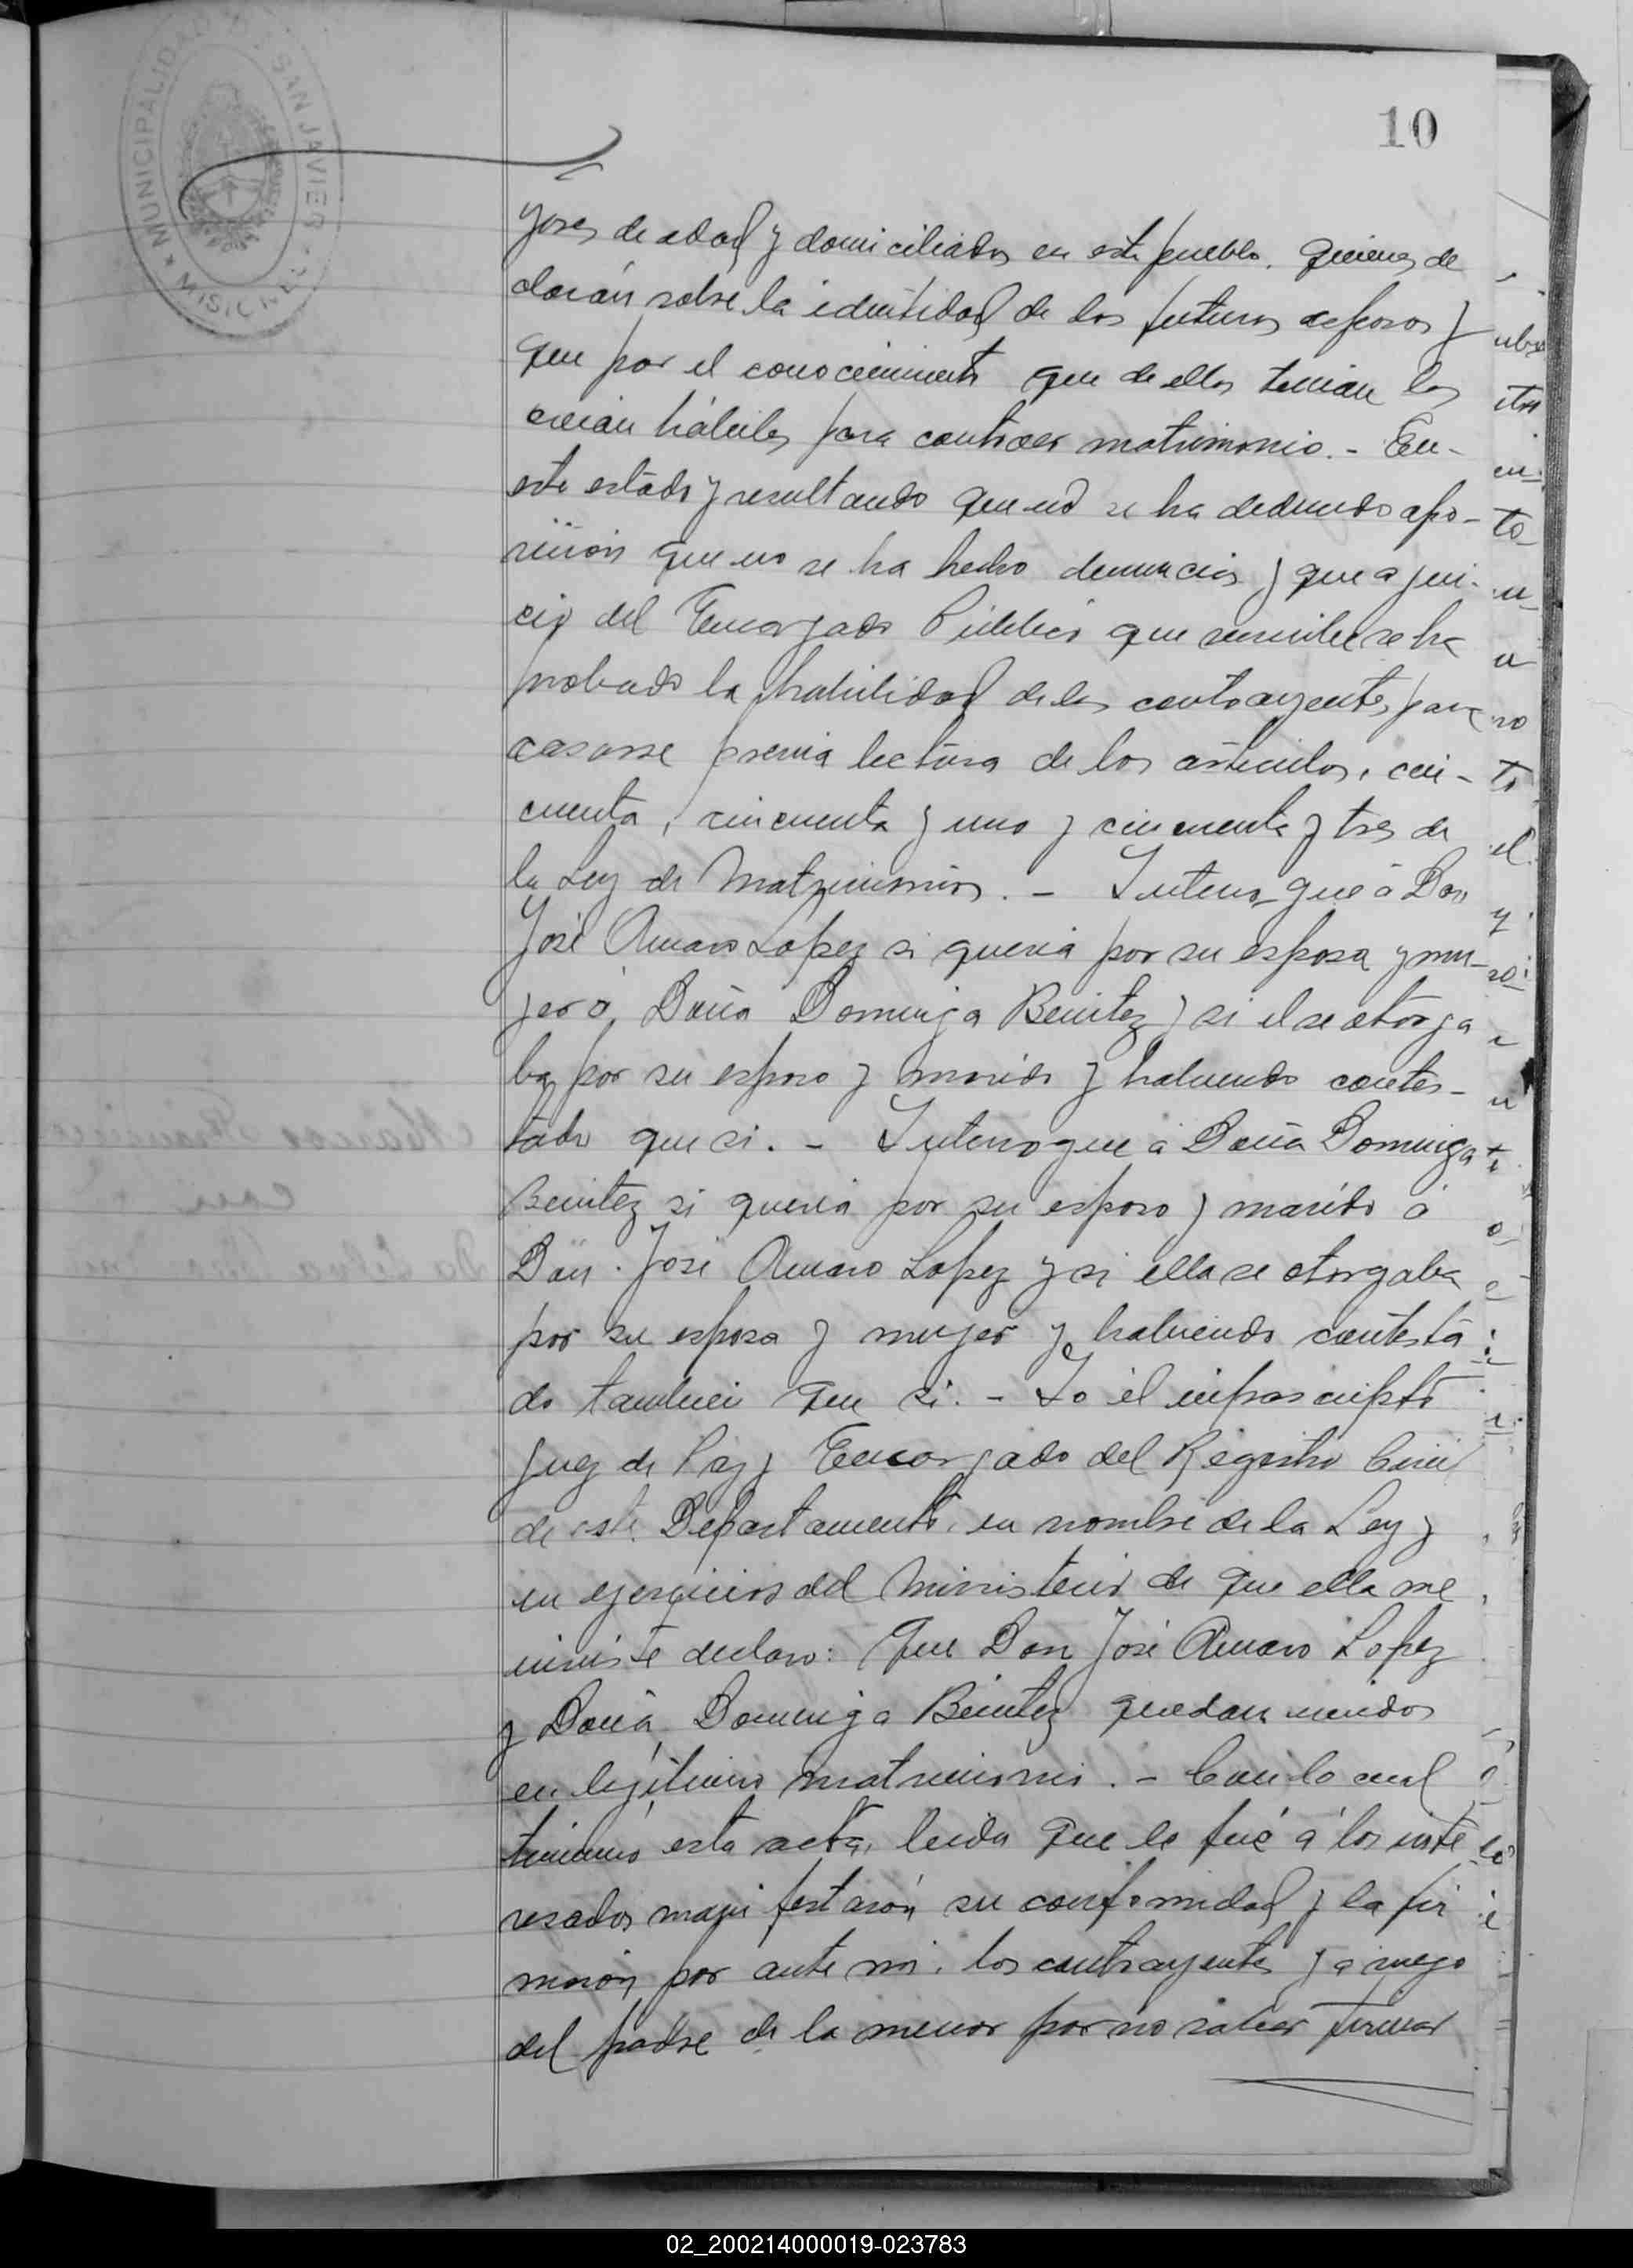 10
MUNICIPALIDAD DE SAN JAVIER
MISIONES
yores de edad y domiciliados en este pueblo. Quienes de
clarán sobre la identidad de los futuros esposos y
que por el conocimiento que de ellos tenian los
creian hábiles para contraer matrimonio. - En-
este estado y resultando que no se ha deducido opo-
sición que no se ha hecho denuncia y que a jui-
cio del Encargado Público que suscribe se ha
probado la habilidad de los contrayentes para
casarse previa lectura de los articulos, cin-
cuenta, cincuenta y uno y cincuenta y tres de
la Ley de Matrimonio. - Interrogue á Don
José Amaro Lopez si queria por su esposa y mu-
jer á Doña Dominga Benitez y si el se otorga
ba por su esposo y marido y habiendo contes-
tado que si. - Interrogue á Doña Dominga
Benitez si queria por su esposo y marido á
Don José Amaro Lopez y si ella se otorgaba
por su esposa y mujer y habiendo contesta
do tambien que si. - Yo el infrascripto
Juez de Paz y Encargado del Registro Civil
de este Departamento, en nombre de la Ley y
en ejercicios del Ministerio de que ella me
inviste declaro: Que Don José Amaro Lopez
y Doña Dominga Benitez quedan unidos
en legitimo matrimonio. - Con lo cual
termino esta acta, leida que le fué á los inte
resados manifestarón su conformidad y la fir
marón por ante mi, los contrayentes y a ruego
del padre de la menor por no saber firmar
02_200214000019-023783